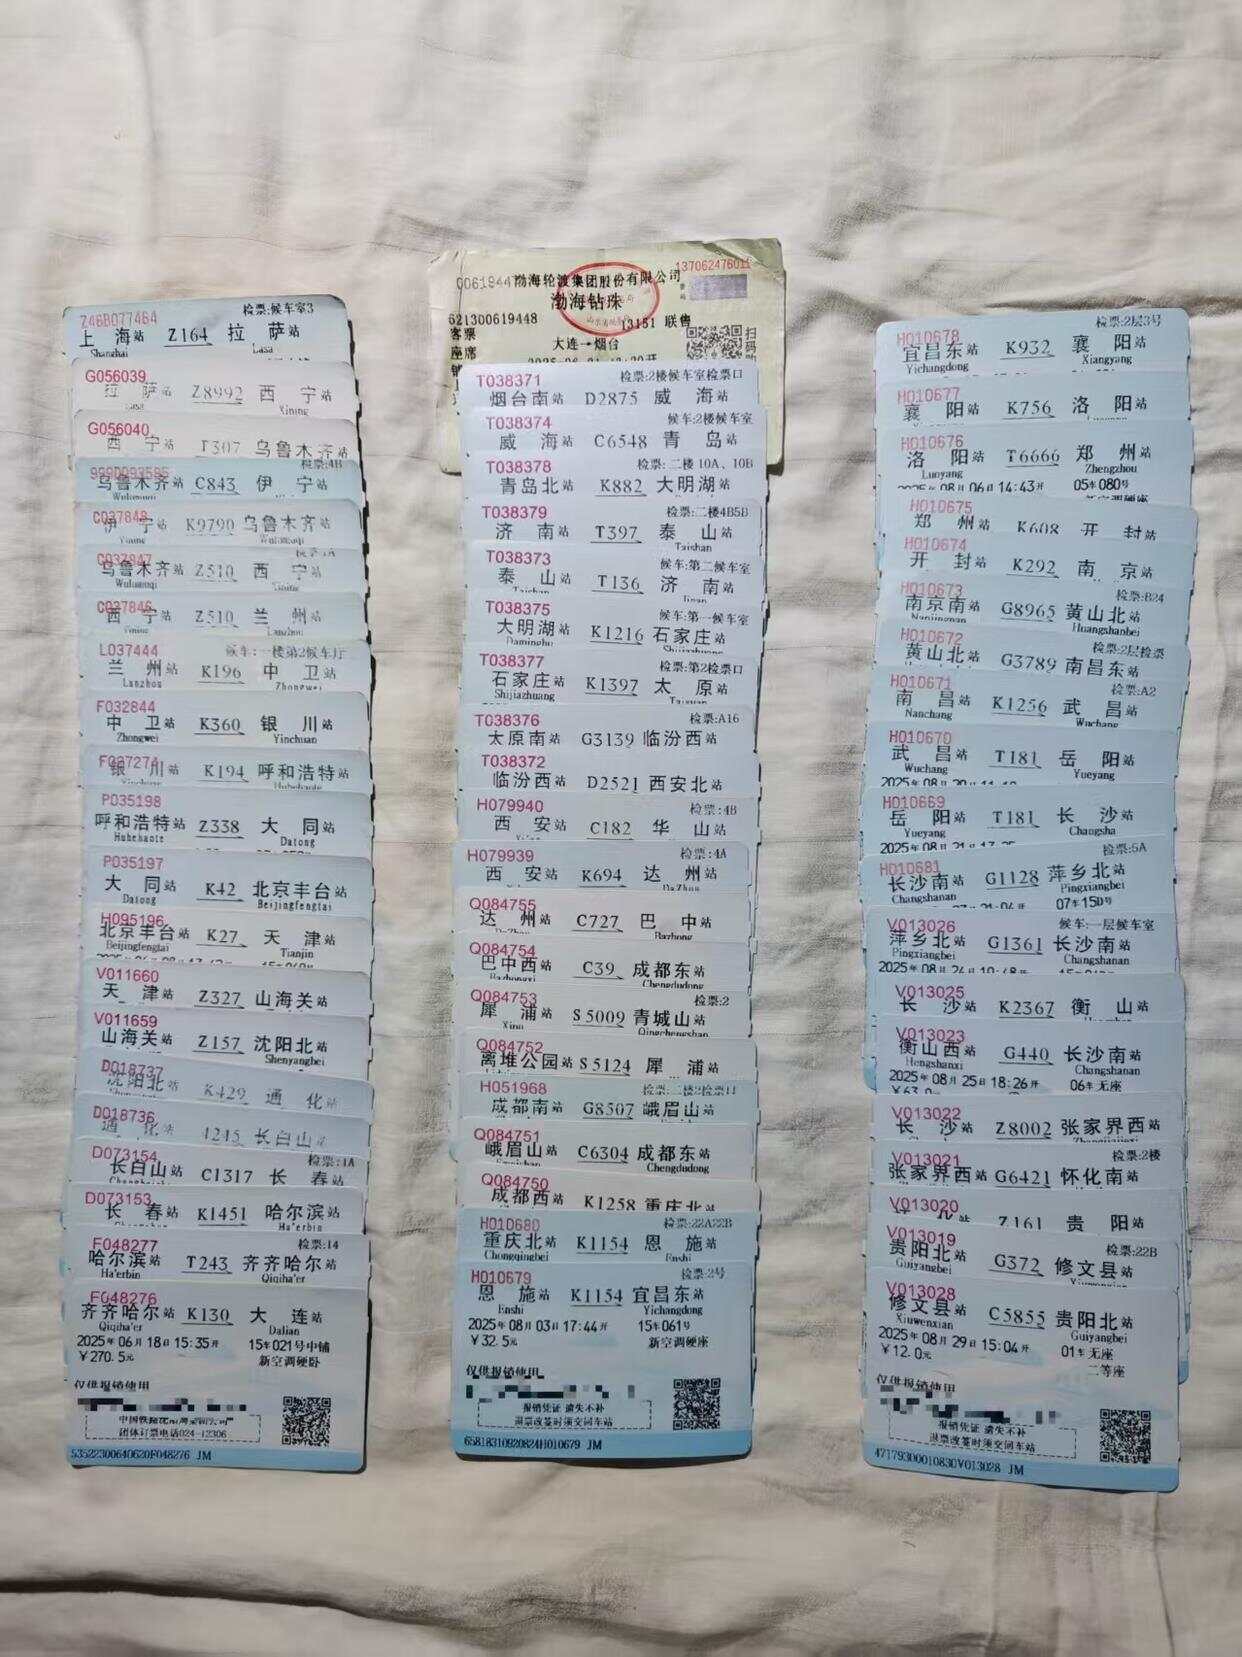 Z46B077464 检票:候车室3
上海站 Z164 拉萨站
Shanghai Lasa
G056039
拉萨站 Z8992 西宁站
Xining
G056040
西宁站 T307 乌鲁木齐站
检票:4B
乌鲁木齐站 C843 伊宁站
C037848
伊宁站 K9790 乌鲁木齐站
C037847
乌鲁木齐站 Z510 西宁站
C037846
西宁站 Z510 兰州站
L037444 候车:一楼第2候车厅
兰州站 K196 中卫站
Lanzhou Zhongwei
F032844
中卫站 K360 银川站
Zhongwei Yinchuan
F037274
银川站 K194 呼和浩特站
P035198
呼和浩特站 Z338 大同站
Huhehaote Datong
P035197
大同站 K42 北京丰台站
Datong Beijingfengtai
H095196
北京丰台站 K27 天津站
Beijingfengtai Tianjin
V011660
天津站 Z327 山海关站
V011659
山海关站 Z157 沈阳北站
Shenyangbei
D018737
沈阳北站 K429 通化站
D018736
通化站 4245 长白山站
D073154 检票:1A
长白山站 C1317 长春站
D073153
长春站 K1451 哈尔滨站
Ha'erbin
F048277 检票:14
哈尔滨站 T243 齐齐哈尔站
Ha'erbin Qiqiha'er
F048276
齐齐哈尔站 K130 大连站
Qiqiha'er Dalian
2025年06月18日15:35开 15车021号中铺
￥270.5元 新空调硬卧
仅供报销使用
团体订票电话024-12306
53522300640620F048276 JM
0061944 渤海轮渡集团股份有限公司 137062476011
渤海钻珠
621300619448 13151 联售
客票 大连→烟台
座席
T038371 检票:2楼候车室检票口
烟台南站 D2875 威海站
T038374 候车:2楼候车室
威海站 C6548 青岛站
T038378 检票:二楼10A、10B
青岛北站 K882 大明湖站
T038379 检票:二楼4B5B
济南站 T397 泰山站
Taishan
T038373 候车:第二候车室
泰山站 T136 济南站
T038375 候车:第一候车室
大明湖站 K1216 石家庄站
T038377 检票:第2检票口
石家庄站 K1397 太原站
Shijiazhuang
T038376 检票:A16
太原南站 G3139 临汾西站
T038372
临汾西站 D2521 西安北站
H079940 检票:4B
西安站 C182 华山站
H079939 检票:4A
西安站 K694 达州站
Q084755
达州站 C727 巴中站
Q084754
巴中西站 C39 成都东站
Q084753 检票:2
犀浦站 S5009 青城山站
Q084752
离堆公园站 S5124 犀浦站
H051968 检票:二楼2检票口
成都南站 G8507 峨眉山站
Q084751
峨眉山站 C6304 成都东站
Chengdudong
Q084750
成都西站 K1258 重庆北站
H010680 检票:22A22B
重庆北站 K1154 恩施站
Chongqingbei Enshi
H010679 检票:2号
恩施站 K1154 宜昌东站
Enshi Yichangdong
2025年08月03日17:44开 15车061号
￥32.5元 新空调硬座
仅供报销使用
报销凭证 遗失不补
退票改签时须交回车站
65818310920824H010679 JM
H010678 检票:2层3号
宜昌东站 K932 襄阳站
Yichangdong Xiangyang
H010677
襄阳站 K756 洛阳站
H010676
洛阳站 T6666 郑州站
Luoyang Zhengzhou
2025年08月06日14:43开 05车080号
H010675
郑州站 K608 开封站
H010674
开封站 K292 南京站
H010673 检票:B24
南京南站 G8965 黄山北站
Huangshanbei
H010672 检票:2层检票
黄山北站 G3789 南昌东站
H010671 检票:A2
南昌站 K1256 武昌站
Nanchang Wuchang
H010670
武昌站 T181 岳阳站
Wuchang Yueyang
H010669
岳阳站 T181 长沙站
Yueyang Changsha
H010681 检票:5A
长沙南站 G1128 萍乡北站
Changshanan Pingxiangbei
07车15D号
V013026 候车:一层候车室
萍乡北站 G1361 长沙南站
Pingxiangbei Changshanan
V013025
长沙站 K2367 衡山站
V013023
衡山西站 G440 长沙南站
Hengshanxi Changshanan
2025年08月25日18:26开 06车无座
V013022
长沙站 Z8002 张家界西站
V013021 检票:2楼
张家界西站 G6421 怀化南站
V013020
Z161 贵阳站
V013019 检票:22B
贵阳北站 G372 修文县站
Guiyangbei
V013028
修文县站 C5855 贵阳北站
Xiuwenxian Guiyangbei
2025年08月29日15:04开 01车无座
￥12.0元 二等座
仅供报销使用
报销凭证 遗失不补
退票改签时须交回车站
47179300010830V013028 JM